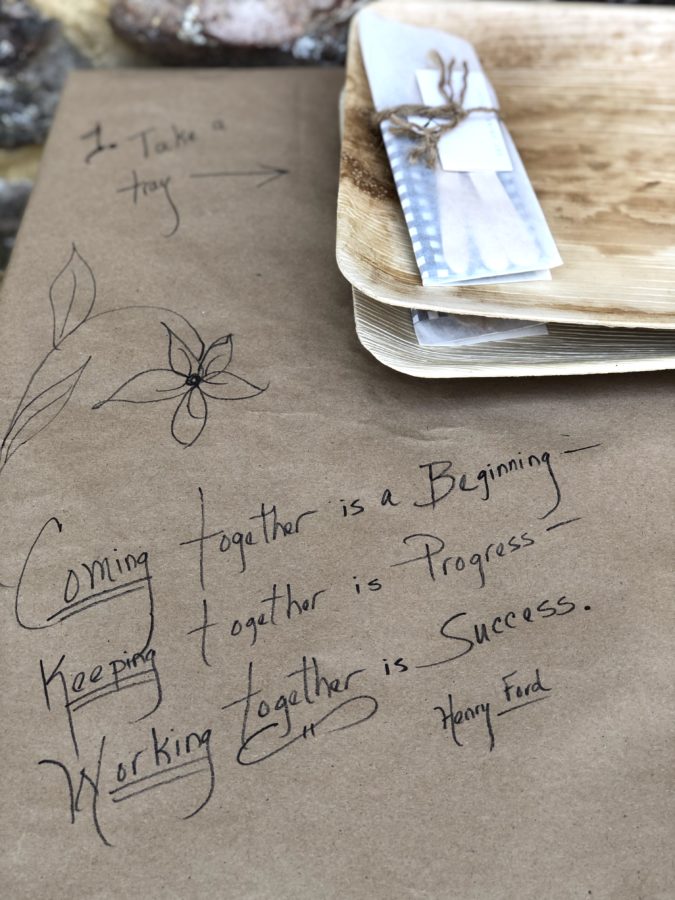 1. Take a
tray
Coming together is a Beginning —
Keeping together is Progress —
Working together is Success.
Henry Ford